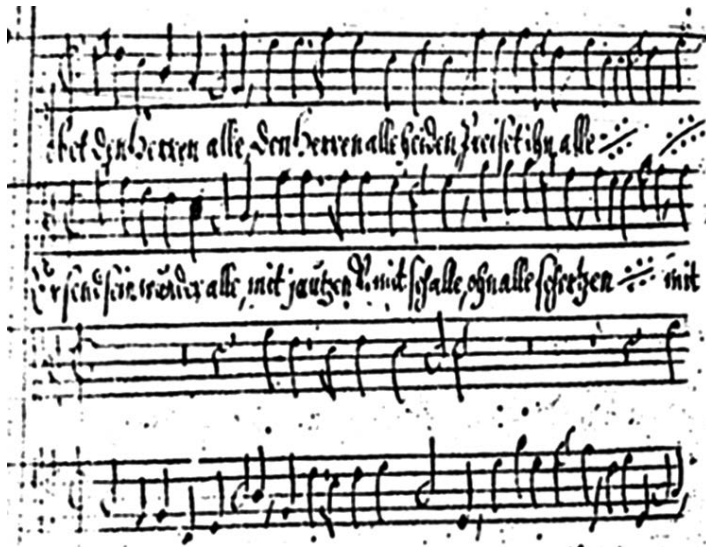 bet den Herren alle, den Herren alle heiden Preiset ihn alle
sein wunder alle, mit jautzen mit schalle, ohn alle schertzen mit